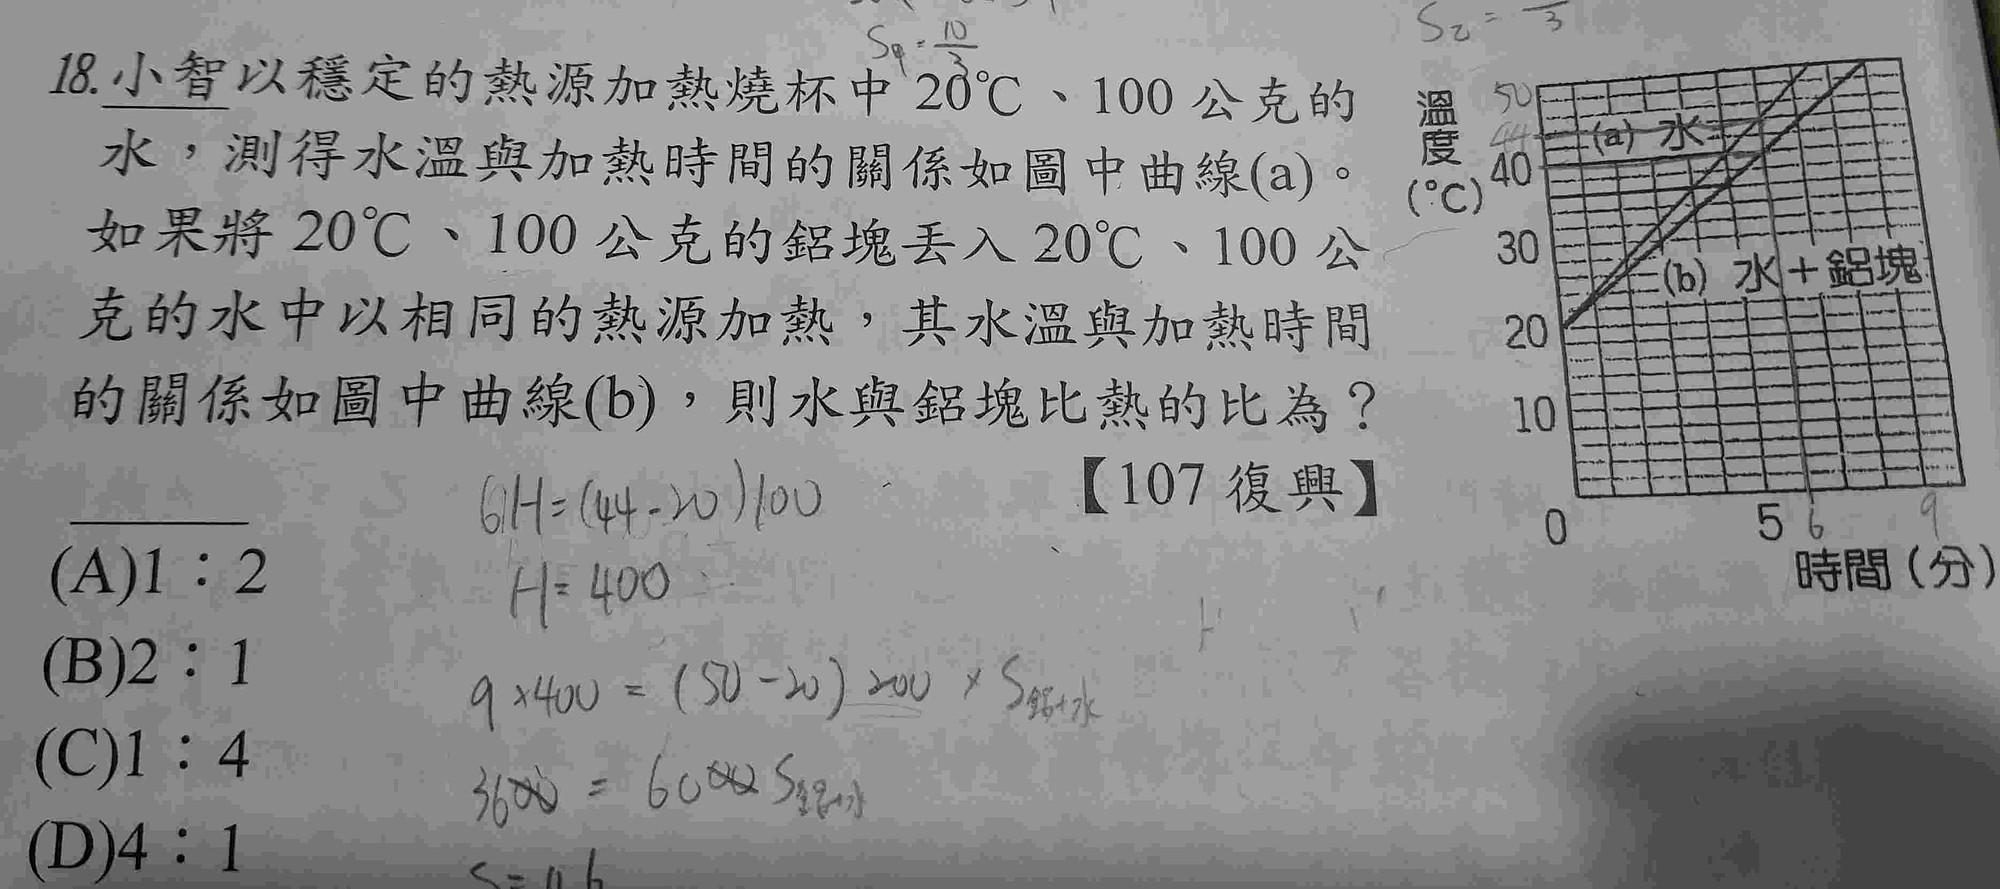 S = 10/3
S₂ = /3
18.小智以穩定的熱源加熱燒杯中 20℃、100 公克的
水，測得水溫與加熱時間的關係如圖中曲線(a)。
如果將 20℃、100 公克的鋁塊丟入 20℃、100 公
克的水中以相同的熱源加熱，其水溫與加熱時間
的關係如圖中曲線(b)，則水與鋁塊比熱的比為？
【107 復興】
(A)1：2
(B)2：1
(C)1：4
(D)4：1
6H=(44-20)100
H=400
9×400 = (50-20) 200 × S鋁+水
3600 = 6000 S鋁+水
S=0.6
溫度
(℃)
50
44
40
30
20
10
0
5
6
9
時間(分)
(a) 水
(b) 水＋鋁塊